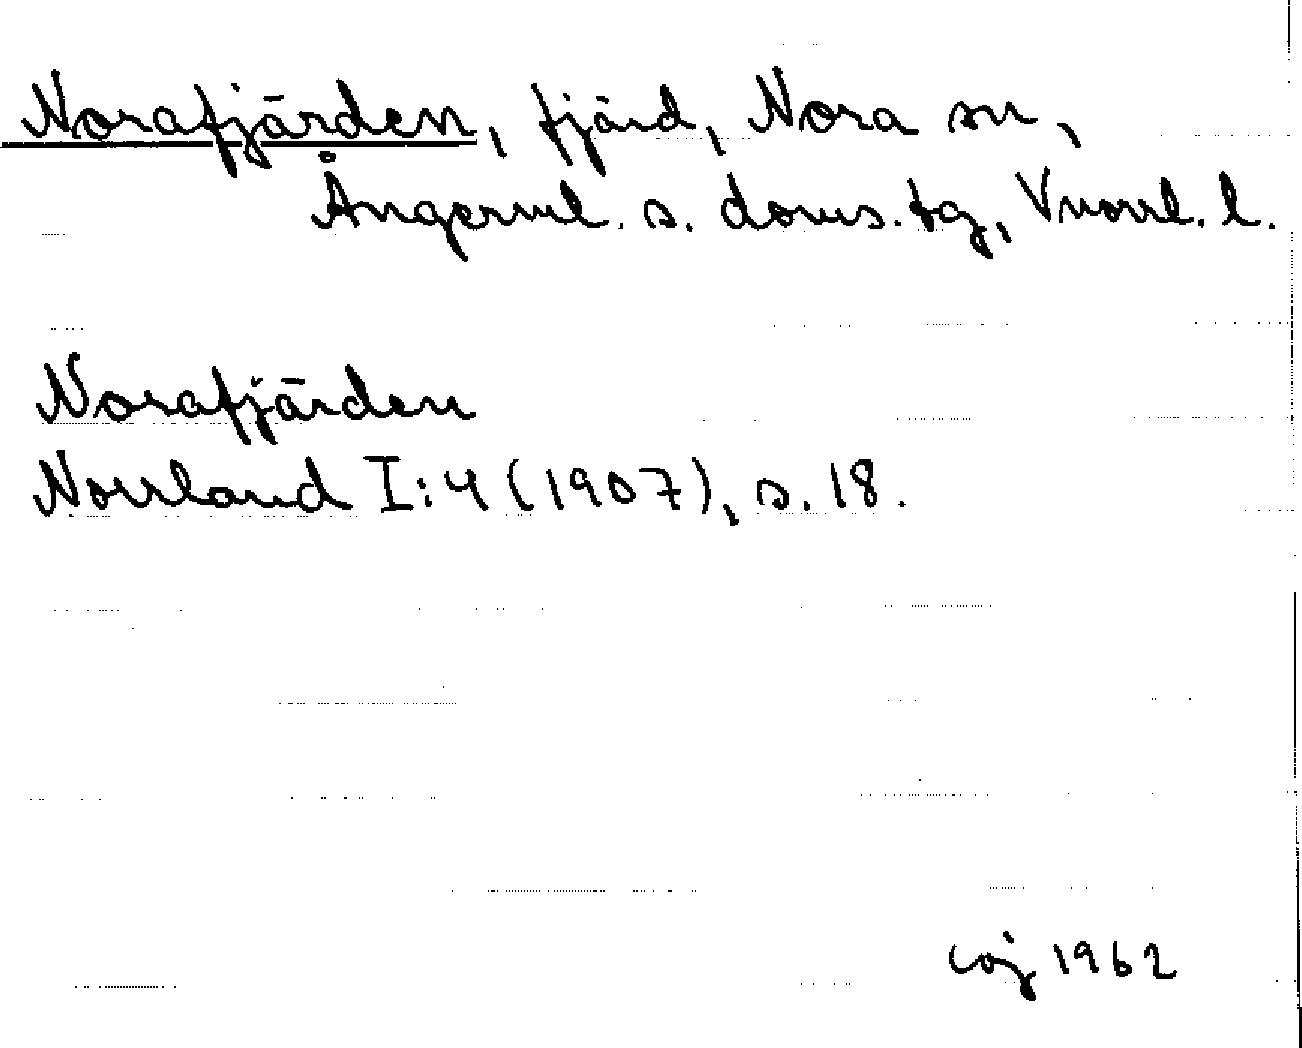 Norafjärden, fjärd, Nora sn,
Ångerml. s. doms. tg, Vnorrl. l.
Norafjärden
Norrland I:4 (1907), s. 18.
1962